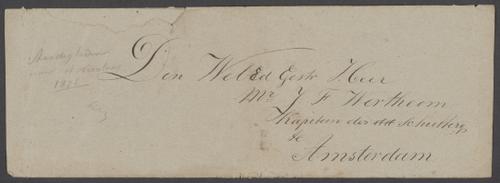 Den WelEd Gestr Heer
Mr J F Wertheim
Kapitein der dd Schutterij
te
Amsterdam
1871